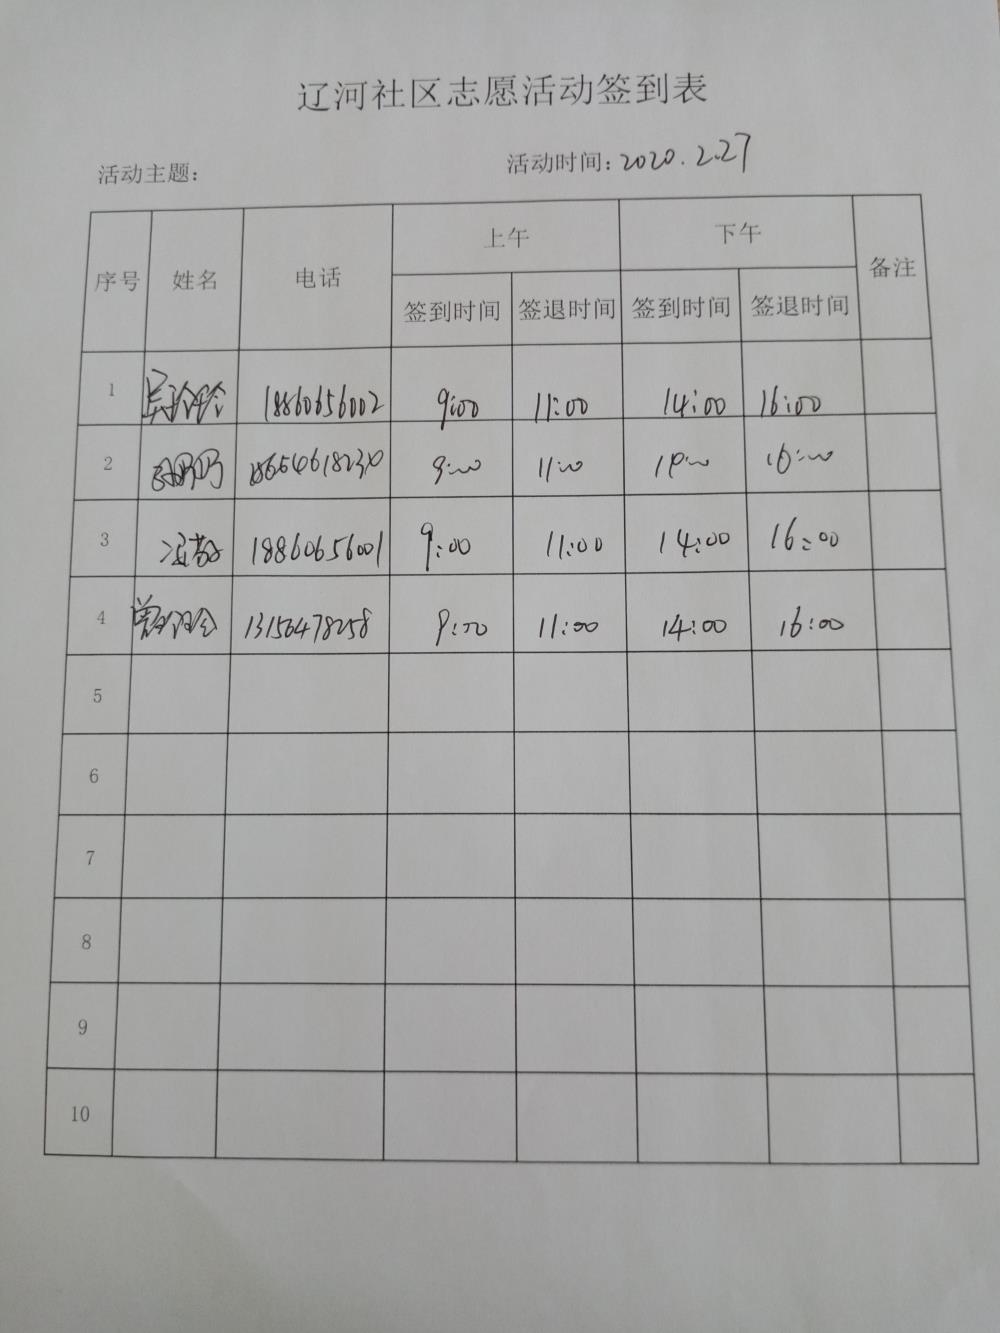 辽河社区志愿活动签到表
活动主题： 活动时间：2020.2.27
序号 姓名 电话 上午 下午 备注
签到时间 签退时间 签到时间 签退时间
1 吴玲玲 18860656002 9:00 11:00 14:00 16:00
2 18654618230 9:00 11:00 14:00 16:00
3 18860656001 9:00 11:00 14:00 16:00
4 13156478258 9:00 11:00 14:00 16:00
5
6
7
8
9
10